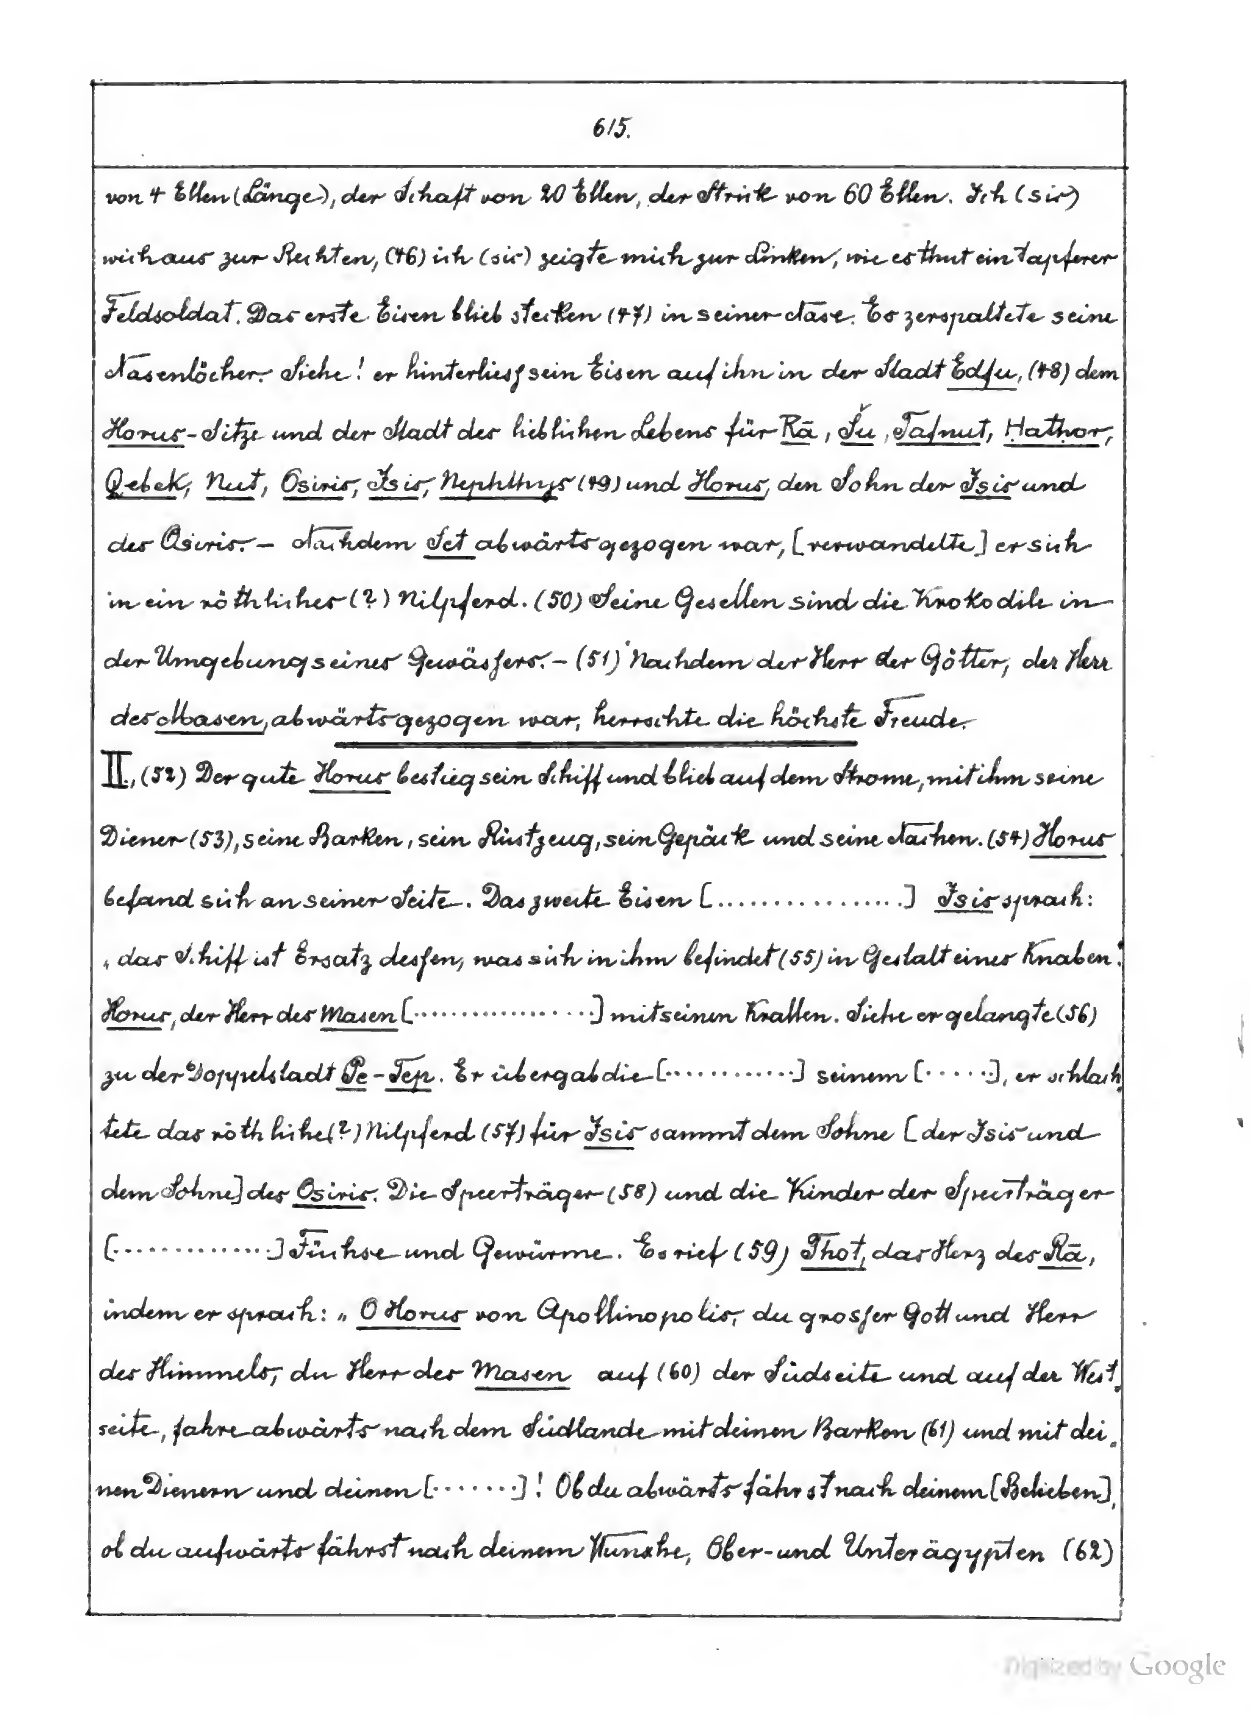 615.
von 4 Ellen (Länge), der Schaft von 20 Ellen, der Strik von 60 Ellen. Ich (sic)
wich aus zur Rechten, (46) ich (sic) zeigte mich zur Linken, wie es thut ein tapferer
Feldsoldat. Das erste Eisen blieb stecken (47) in seiner Nase. Es zerspaltete seine
Nasenlöcher. Siehe! er hinterliess sein Eisen auf ihn in der Stadt Edfu, (48) dem
Horus-Sitze und der Stadt des lieblichen Lebens für Rā, Šu, Tafnut, Hathor,
Qebek, Nut, Osiris, Isis, Nephthys (49) und Horus, den Sohn der Isis und
des Osiris. – Nachdem Set abwärts gezogen war, [verwandelte] er sich
in ein röthliches (?) Nilpferd. (50) Seine Gesellen sind die Krokodile in
der Umgebung seines Gewässers. – (51) Nachdem der Herr der Götter, der Herr
des Masen, abwärts gezogen war, herrschte die höchste Freude.
II, (52) Der gute Horus bestieg sein Schiff und blieb auf dem Strome, mit ihm seine
Diener (53), seine Barken, sein Rüstzeug, sein Gepäck und seine Nachen. (54) Horus
befand sich an seiner Seite. Das zweite Eisen [................] Isis sprach:
„das Schiff ist Ersatz dessen, was sich in ihm befindet (55) in Gestalt eines Knaben."
Horus, der Herr des Masen [................] mit seinen Krallen. Siehe er gelangte (56)
zu der Doppelstadt Pe-Tep. Er übergab die [............] seinem [.....], er schlach,
tete das röthliche (?) Nilpferd (57) für Isis sammt dem Sohne [der Isis und
dem Sohne] des Osiris. Die Speerträger (58) und die Kinder der Speerträger
[..............] Füchse und Gewürme. Es rief (59) Thot, das Herz des Rā,
indem er sprach: „O Horus von Apollinopolis, du grosser Gott und Herr
des Himmels, du Herr des Masen auf (60) der Südseite und auf der West,
seite, fahre abwärts nach dem Südlande mit deinen Barken (61) und mit dei,
nen Dienern und deinen [.......]! Ob du abwärts fährst nach deinem [Belieben],
ob du aufwärts fährst nach deinem Wunsche, Ober- und Unterägypten (62)
Digitized by Google